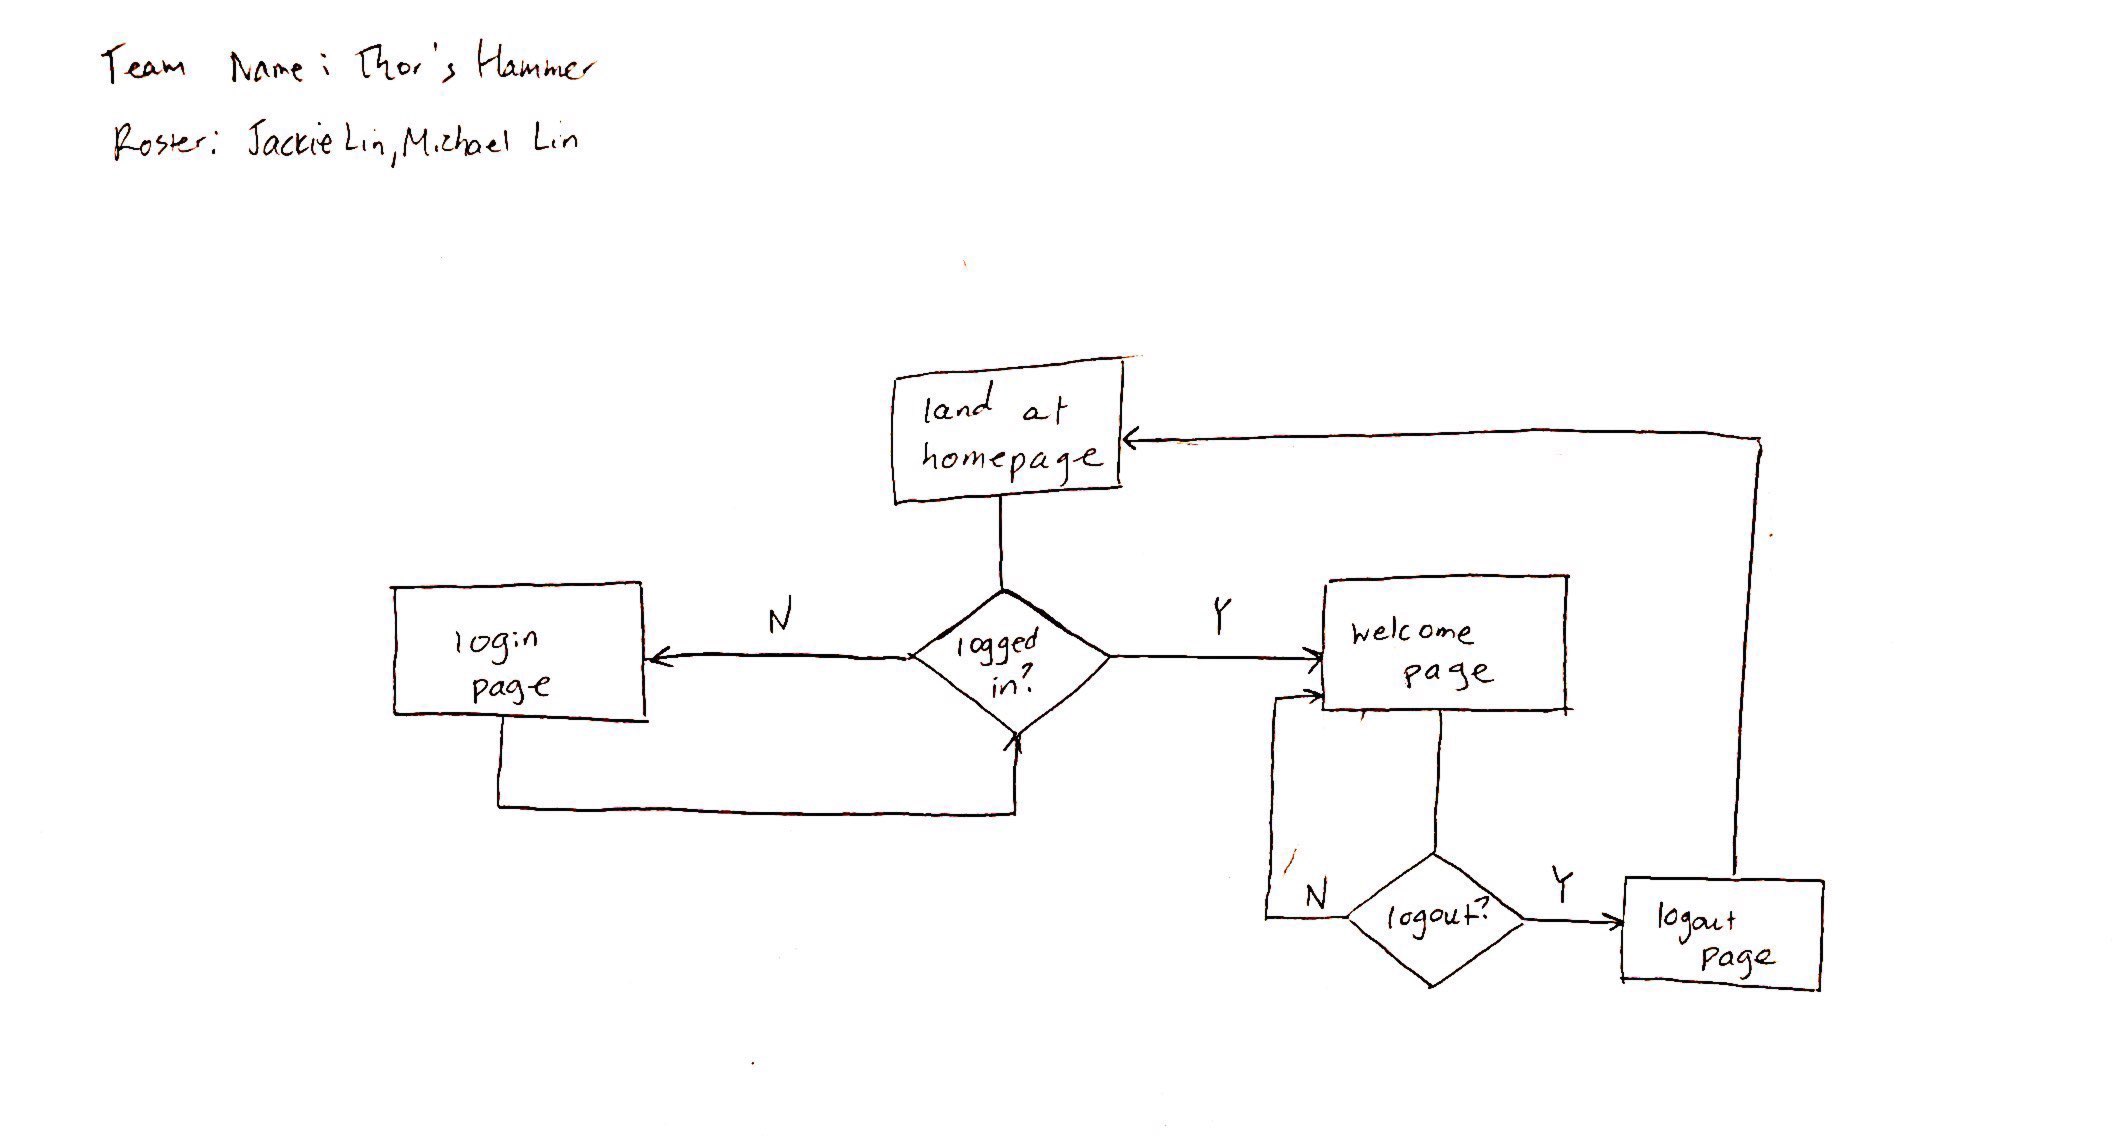 Team Name: Thor's Hammer
Roster: Jackie Lin, Michael Lin
land at
homepage
N
Y
login
page
logged
in?
welcome
page
N
Y
logout?
logout
page